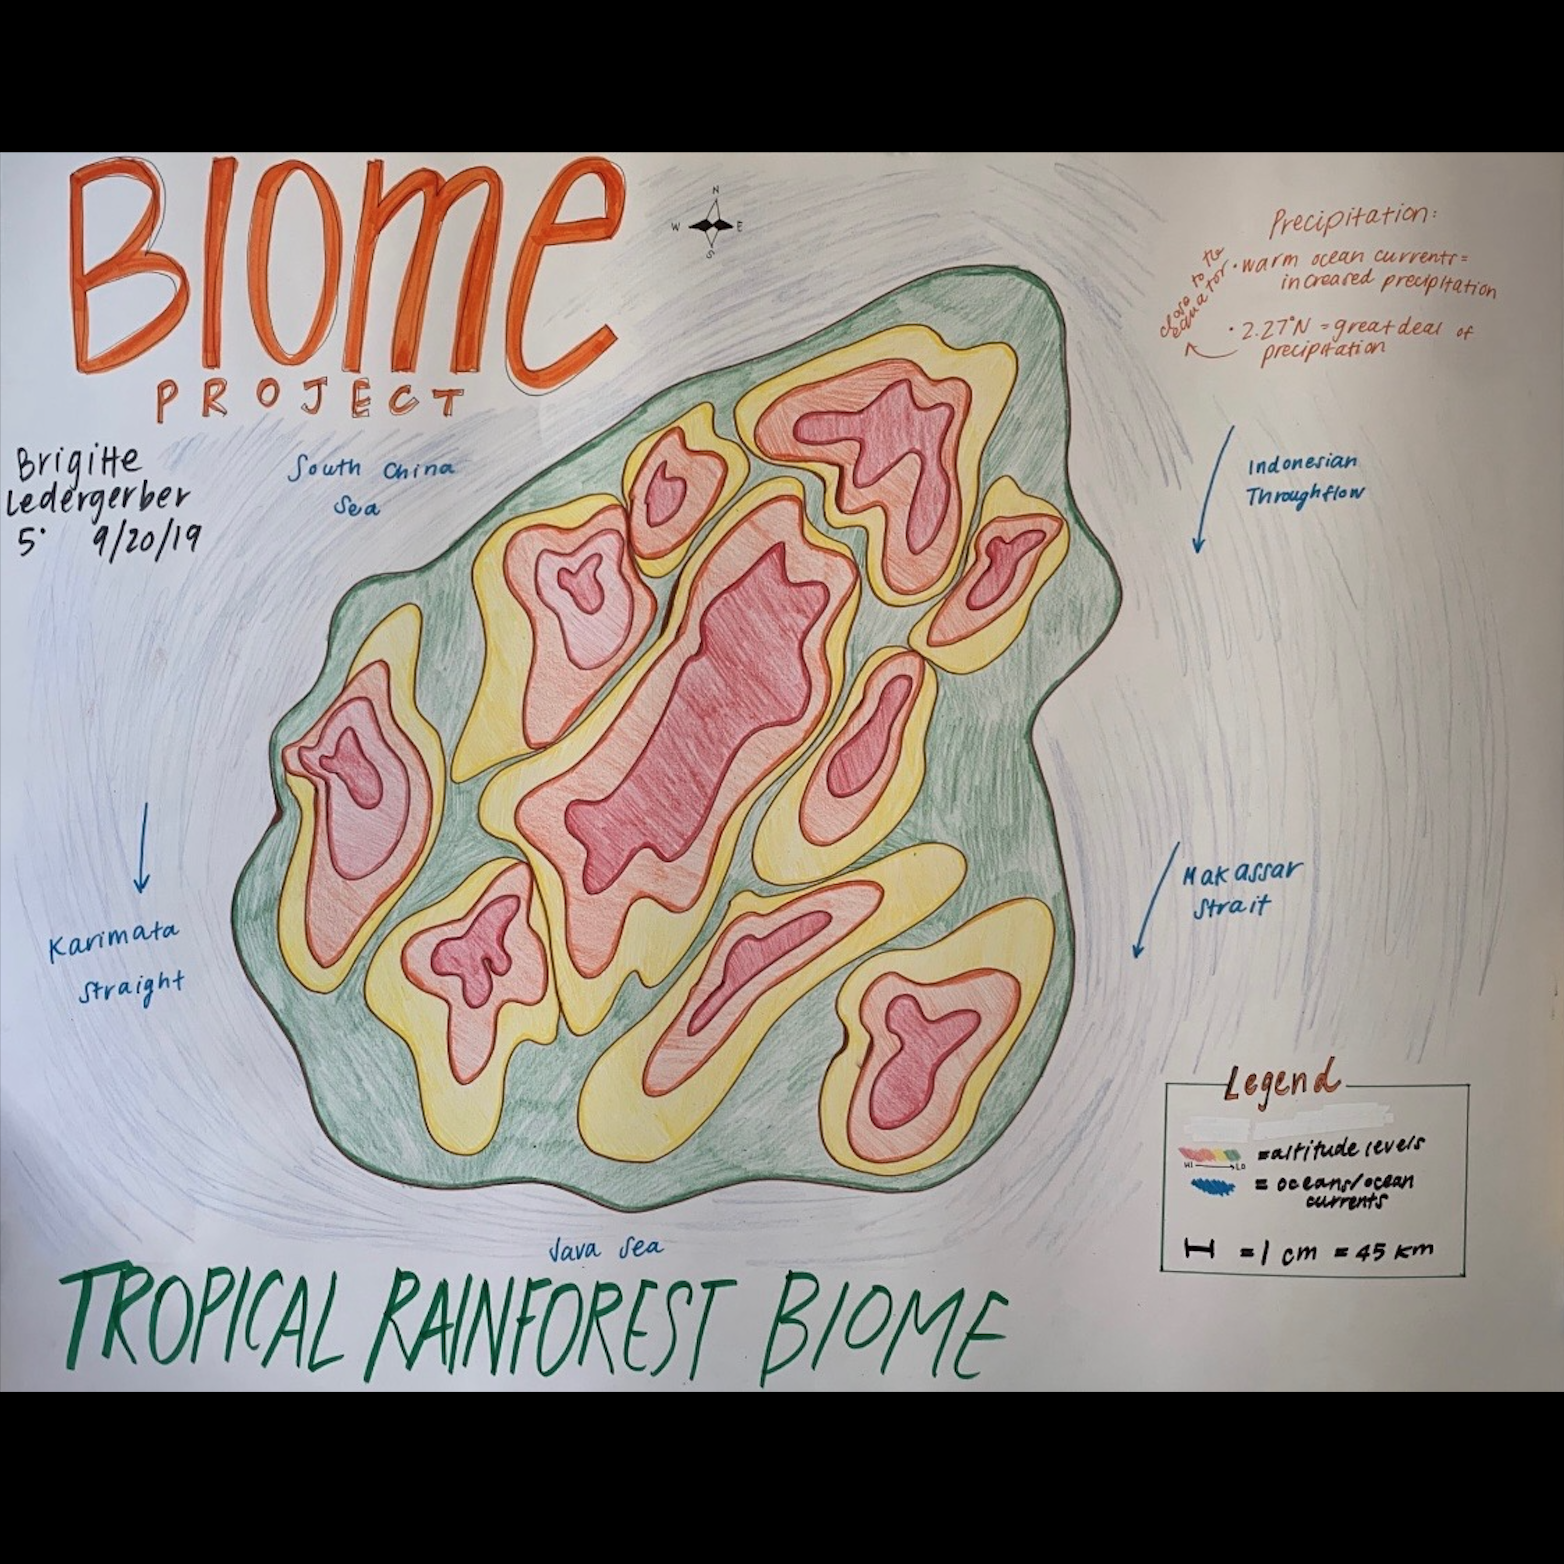 BIOME
PROJECT
Brigitte
Ledergerber
5° 9/20/19
N
W E
S
Precipitation:
• warm ocean currents =
increased precipitation
• 2.27°N = great deal of
precipitation
close to the
equator
South China
Sea
Indonesian
Throughflow
Karimata
Straight
Makassar
Strait
Java Sea
Legend
HI → LO = altitude levels
= oceans/ocean
currents
= 1 cm = 45 km
TROPICAL RAINFOREST BIOME